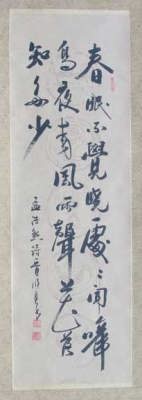 春眠不覺曉處〻聞啼
鳥夜來風雨聲花落
知多少
孟浩然詩